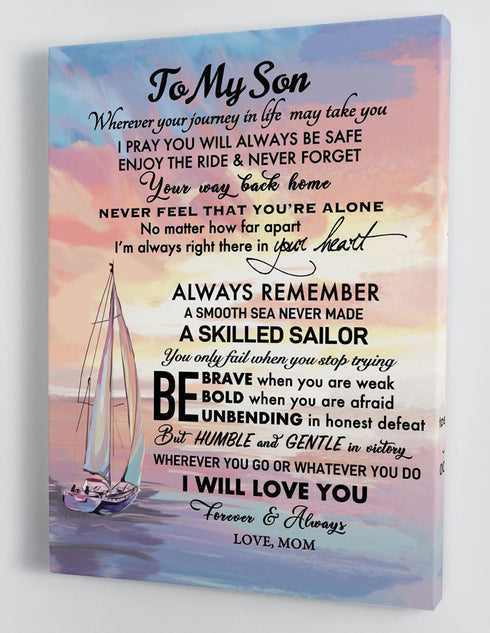 To My Son
Wherever your journey in life may take you
I PRAY YOU WILL ALWAYS BE SAFE
ENJOY THE RIDE & NEVER FORGET
Your way back home
NEVER FEEL THAT YOU'RE ALONE
No matter how far apart
I'm always right there in your heart
ALWAYS REMEMBER
A SMOOTH SEA NEVER MADE
A SKILLED SAILOR
You only fail when you stop trying
BE BRAVE when you are weak
BOLD when you are afraid
UNBENDING in honest defeat
But HUMBLE and GENTLE in victory
WHEREVER YOU GO OR WHATEVER YOU DO
I WILL LOVE YOU
Forever & Always
LOVE, MOM